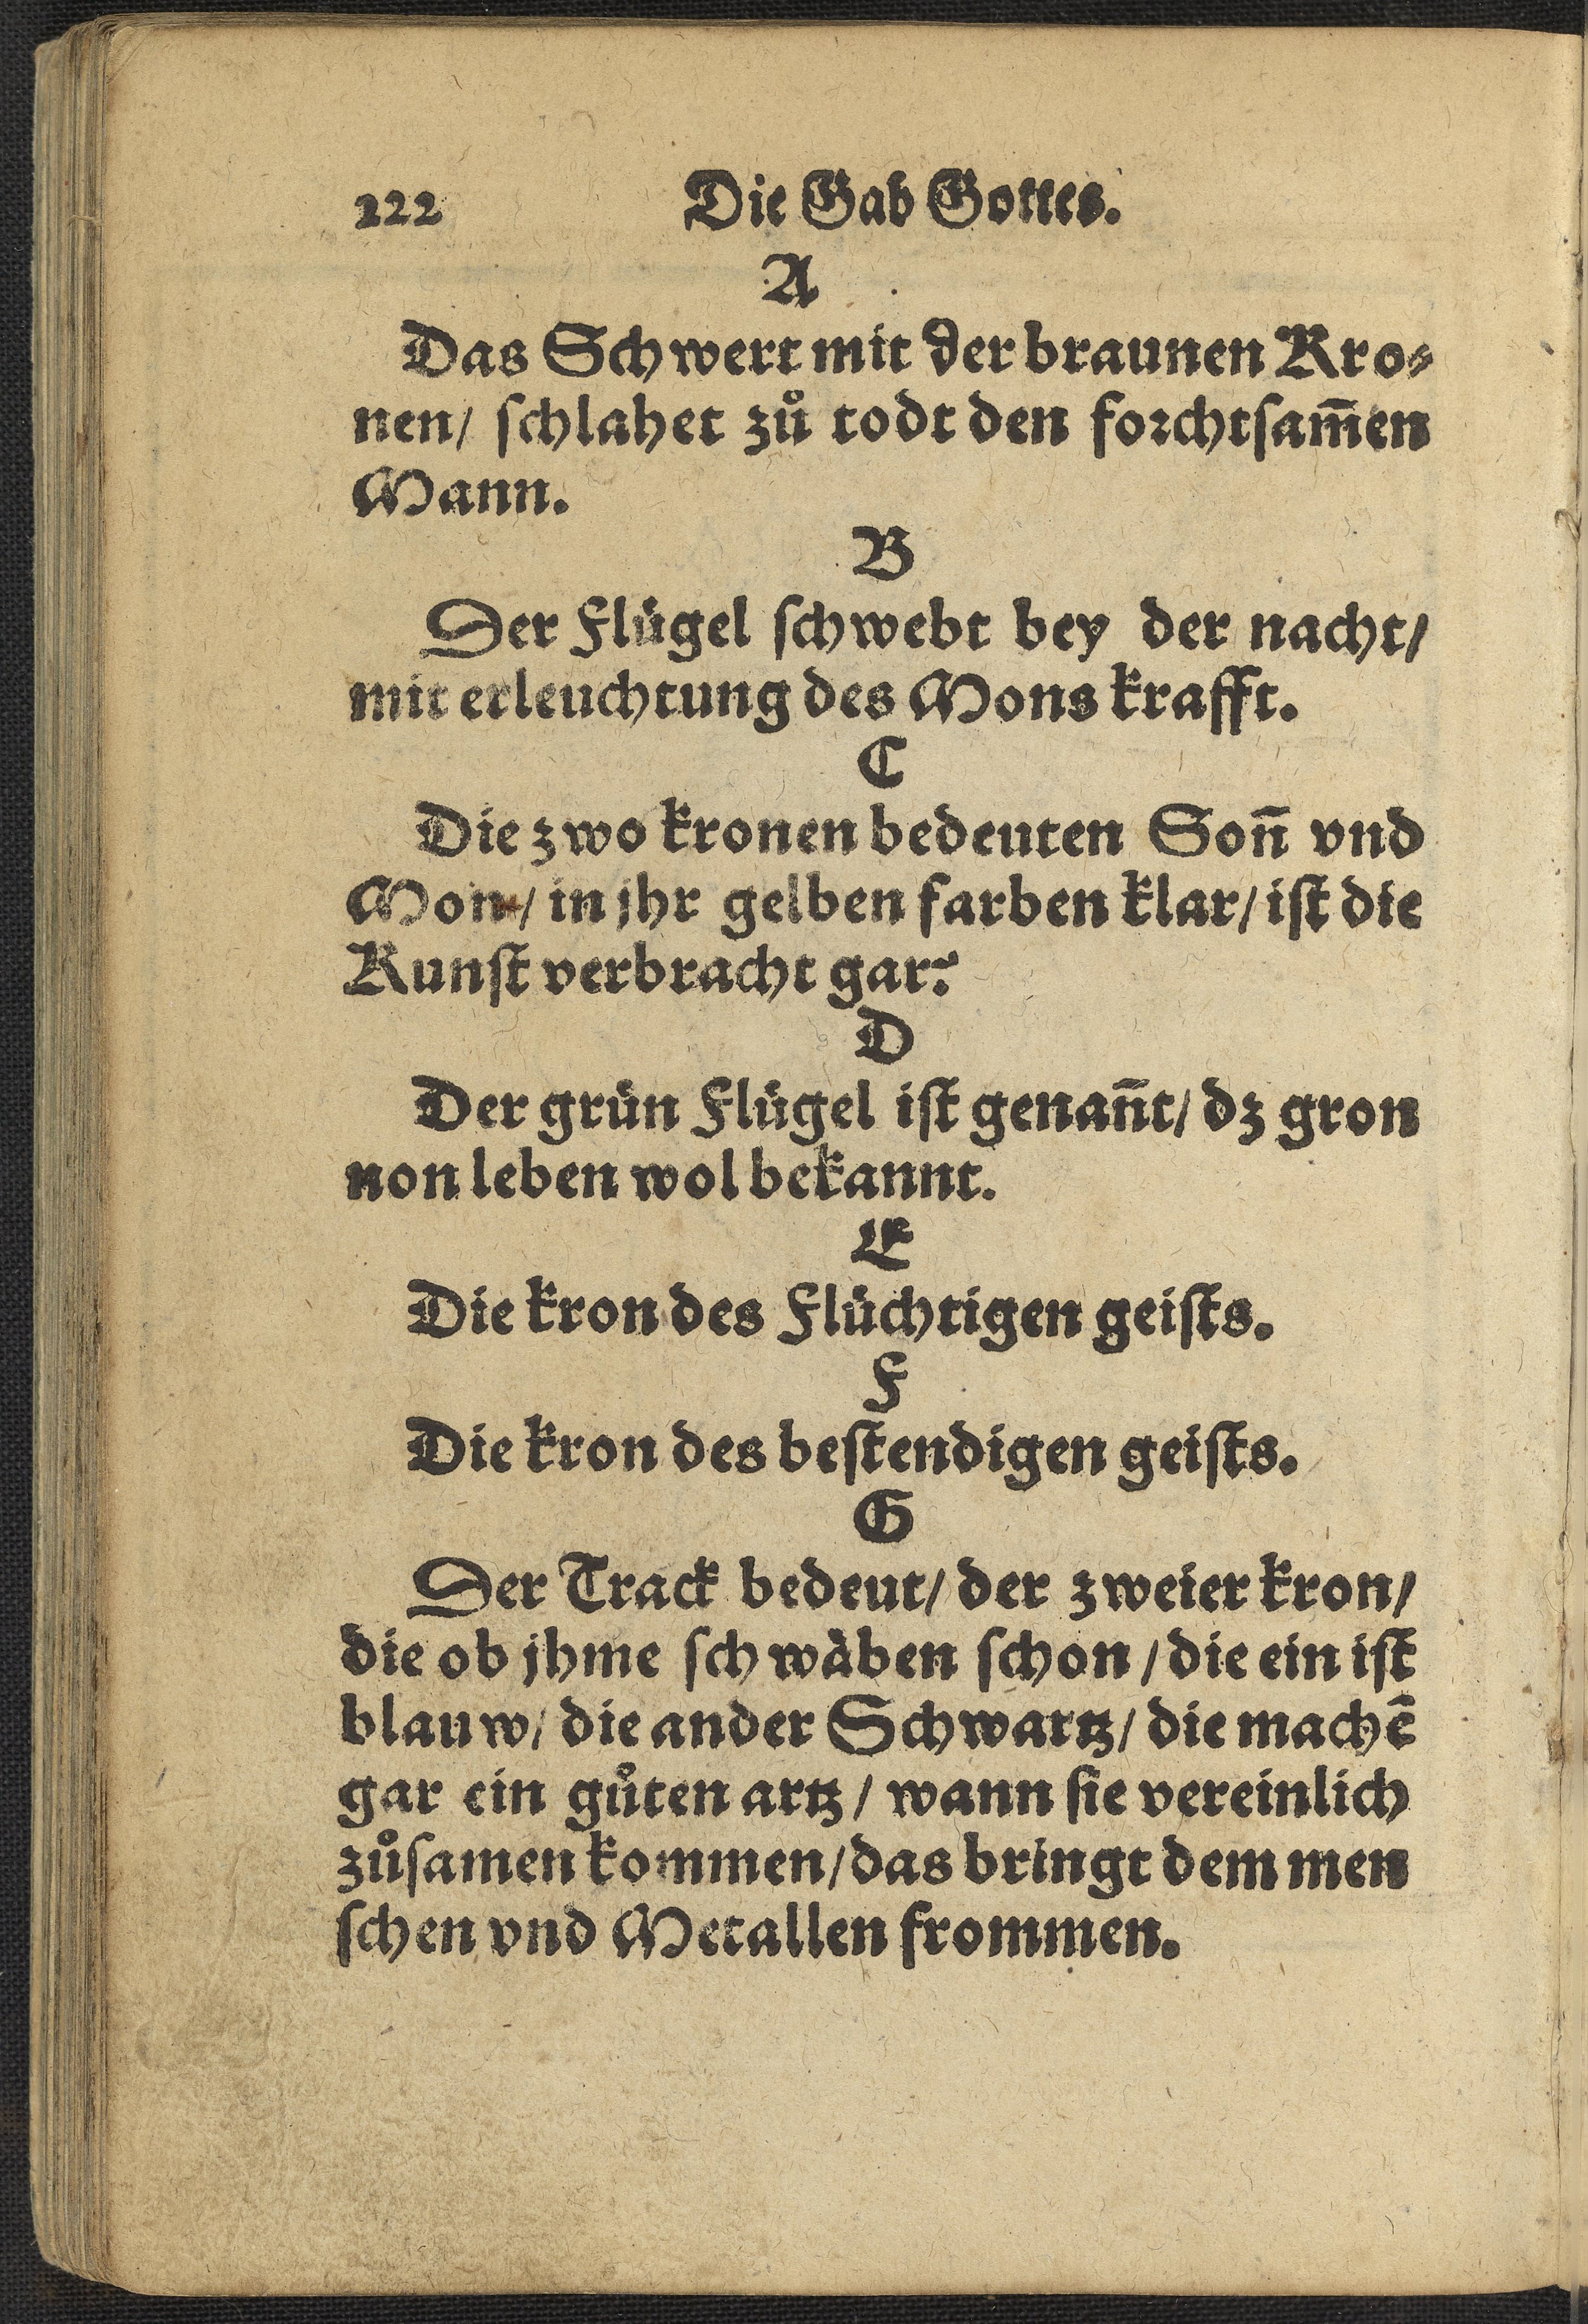 222 Die Gab Gottes.
A
Das Schwert mit der braunen Kro⸗
nen/ schlahet zů todt den forchtsam̄en
Mann.
B
Der Flügel schwebt bey der nacht/
mit erleuchtung des Mons krafft.
C
Die zwo kronen bedeuten Son̄ vnd
Mon/ in jhr gelben farben klar/ ist die
Kunst verbracht gar.
D
Der grün Flügel ist genan̄t/ dz gron
non leben wol bekannt.
E
Die kron des Flüchtigen geists.
F
Die kron des bestendigen geists.
G
Der Track bedeut/ der zweier kron/
die ob jhme schwäben schon/ die ein ist
blauw/ die ander Schwartz/ die machē
gar ein gůten artz/ wann sie vereinlich
zůsamen kommen/ das bringt dem men
schen vnd Metallen frommen.